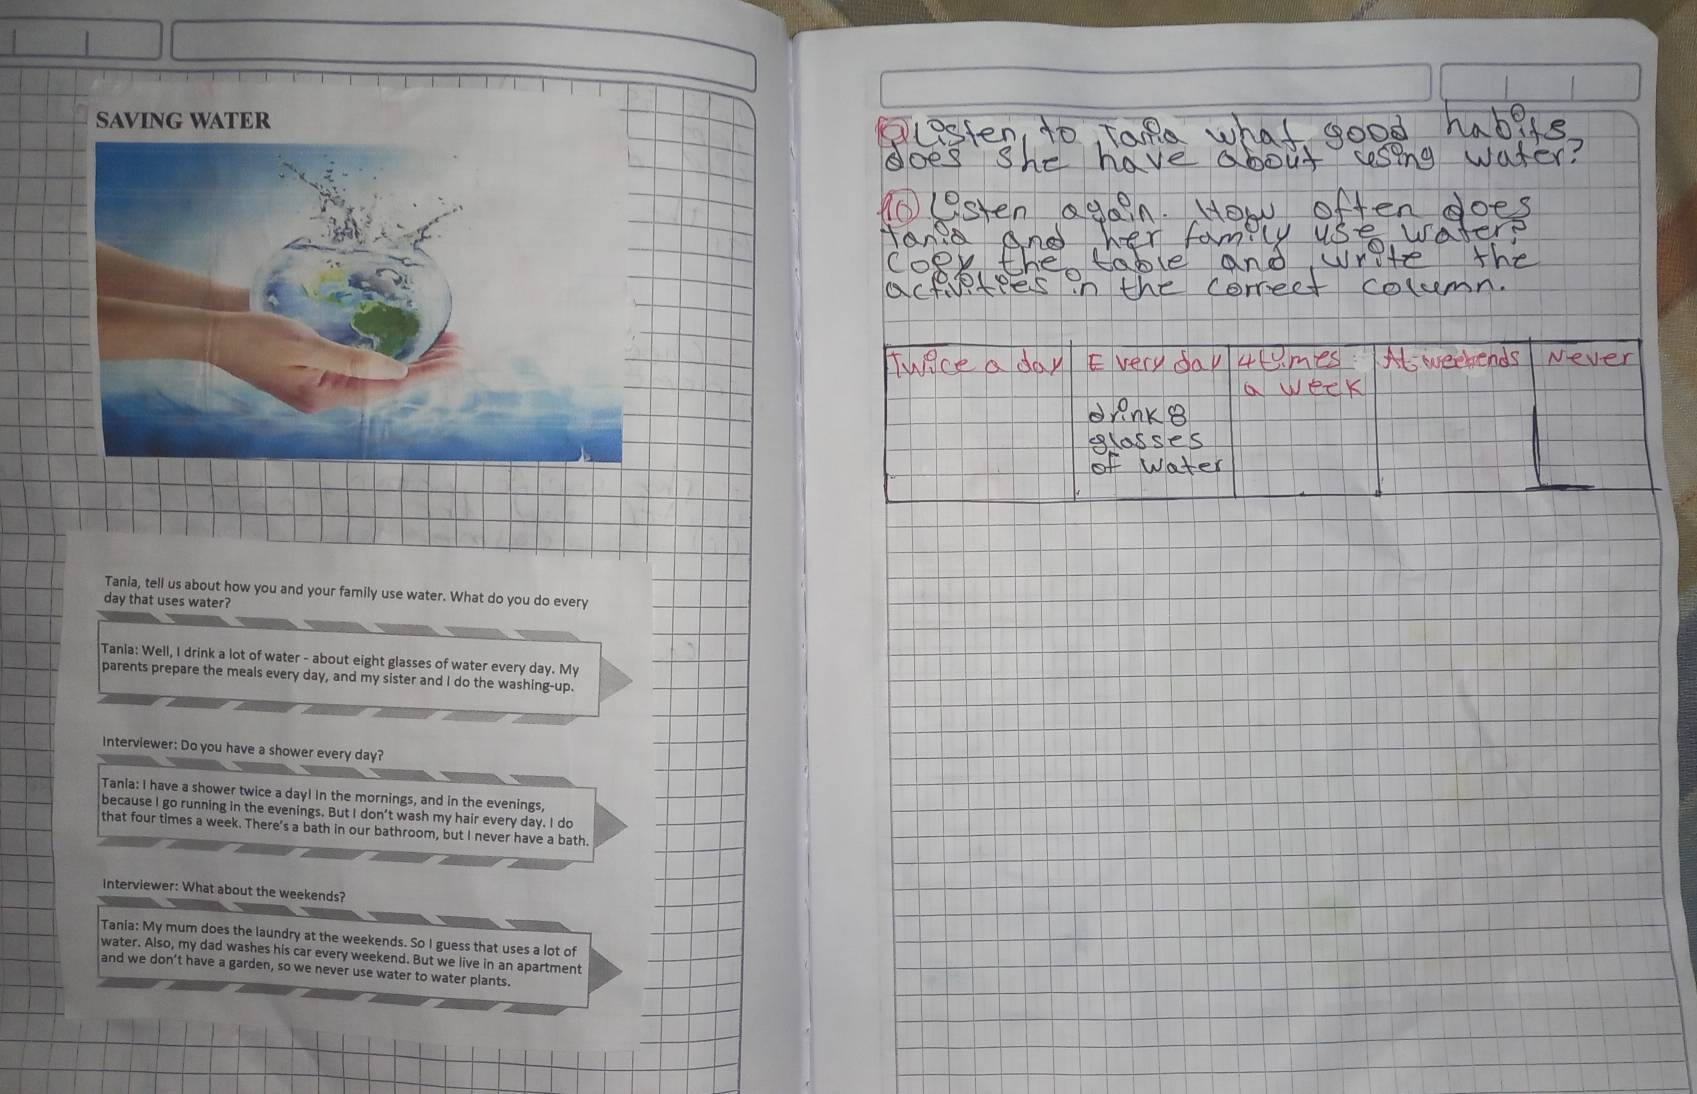 SAVING WATER
Tania, tell us about how you and your family use water. What do you do every
day that uses water?
Tania: Well, I drink a lot of water - about eight glasses of water every day. My
parents prepare the meals every day, and my sister and I do the washing-up.
Interviewer: Do you have a shower every day?
Tania: I have a shower twice a day! In the mornings, and in the evenings,
because I go running in the evenings. But I don't wash my hair every day. I do
that four times a week. There's a bath in our bathroom, but I never have a bath.
Interviewer: What about the weekends?
Tania: My mum does the laundry at the weekends. So I guess that uses a lot of
water. Also, my dad washes his car every weekend. But we live in an apartment
and we don't have a garden, so we never use water to water plants.
9 Listen, to Tania what good habits
does she have about using water?
10 Listen again. How often does
Tania and her family use water?
Copy the table and write the
activities in the correct column.
Twice a day Every day 4 times At weekends Never
a week
drink 8
glasses
of water